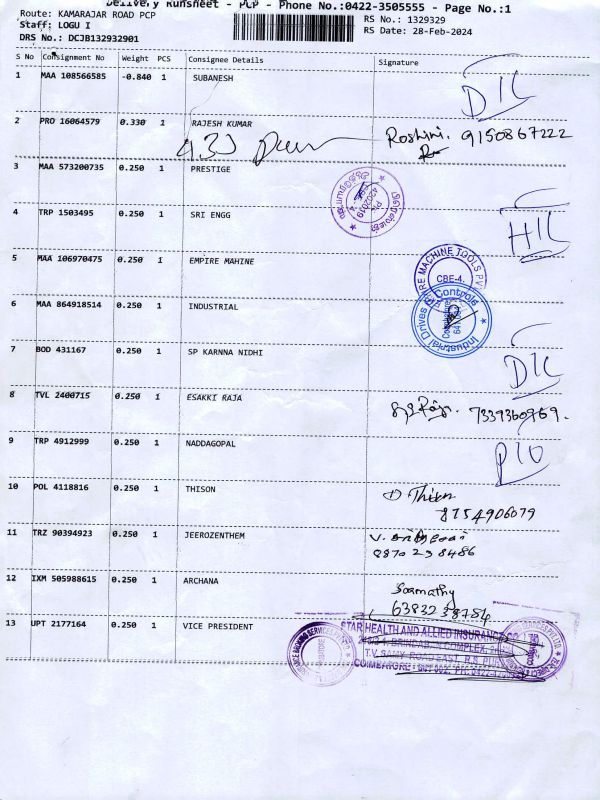 Delivery Runsheet - PCP - Phone No.:0422-3505555 - Page No.:1
Route: KAMARAJAR ROAD PCP
RS No.: 1329329
Staff: LOGU I
RS Date: 28-Feb-2024
DRS No.: DCJB132932901
S No Consignment No Weight PCS Consignee Details Signature
1 MAA 108566585 -0.840 1 SUBANESH
2 PRO 16064579 0.330 1 RAJESH KUMAR
Roshini. 9150867222
3 MAA 573200735 0.250 1 PRESTIGE
4 TRP 1503495 0.250 1 SRI ENGG
HIL
5 MAA 106970475 0.250 1 EMPIRE MAHINE
MACHINE TOOLS
CBE-4.
6 MAA 864918514 0.250 1 INDUSTRIAL
Industrial Drives & Controls
7 BOD 431167 0.250 1 SP KARNNA NIDHI
DIL
8 TVL 2400715 0.250 1 ESAKKI RAJA
7339360969.
9 TRP 4912999 0.250 1 NADDAGOPAL
10 POL 4118816 0.250 1 THISON
8754906079
11 TRZ 90394923 0.250 1 JEEROZENTHEM
12 IXM 505988615 0.250 1 ARCHANA
6383238784
13 UPT 2177164 0.250 1 VICE PRESIDENT
STAR HEALTH AND ALLIED INSURANCE CO.
T.V. SAMY ROAD EAST, R.S. PURAM